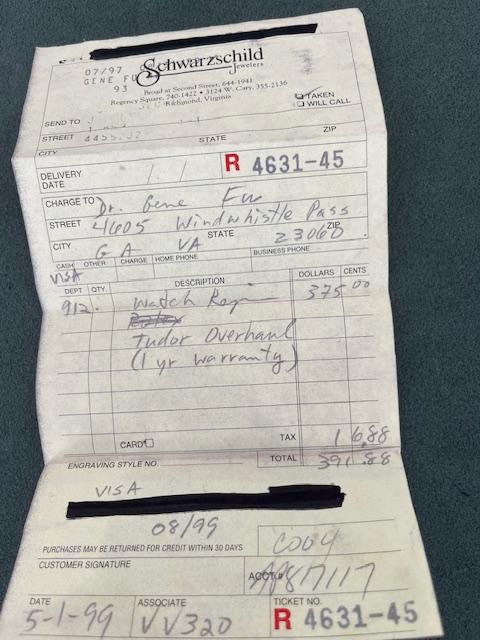 07/97
GENE FU
93
Schwarzschild
Jewelers
Broad at Second Street, 644-1941
Regency Square, 740-1427 • 3124 W. Cary, 355-2136
Richmond, Virginia
TAKEN
WILL CALL
SEND TO
STREET
STATE
ZIP
CITY
DELIVERY DATE / /
R 4631-45
CHARGE TO Dr. Gene Fu
STREET 4605 Windwhistle Pass
CITY GA STATE VA ZIP 23060
CASH OTHER CHARGE HOME PHONE BUSINESS PHONE
VISA
DEPT QTY. DESCRIPTION DOLLARS CENTS
912. Watch Repair 375 00
Rolex
Tudor Overhaul
(1 yr warranty)
CARD TAX 16.88
ENGRAVING STYLE NO. TOTAL 391.88
VISA
08/99
PURCHASES MAY BE RETURNED FOR CREDIT WITHIN 30 DAYS
CUSTOMER SIGNATURE
ACCT#
DATE ASSOCIATE TICKET NO.
5-1-99 VV320 R 4631-45